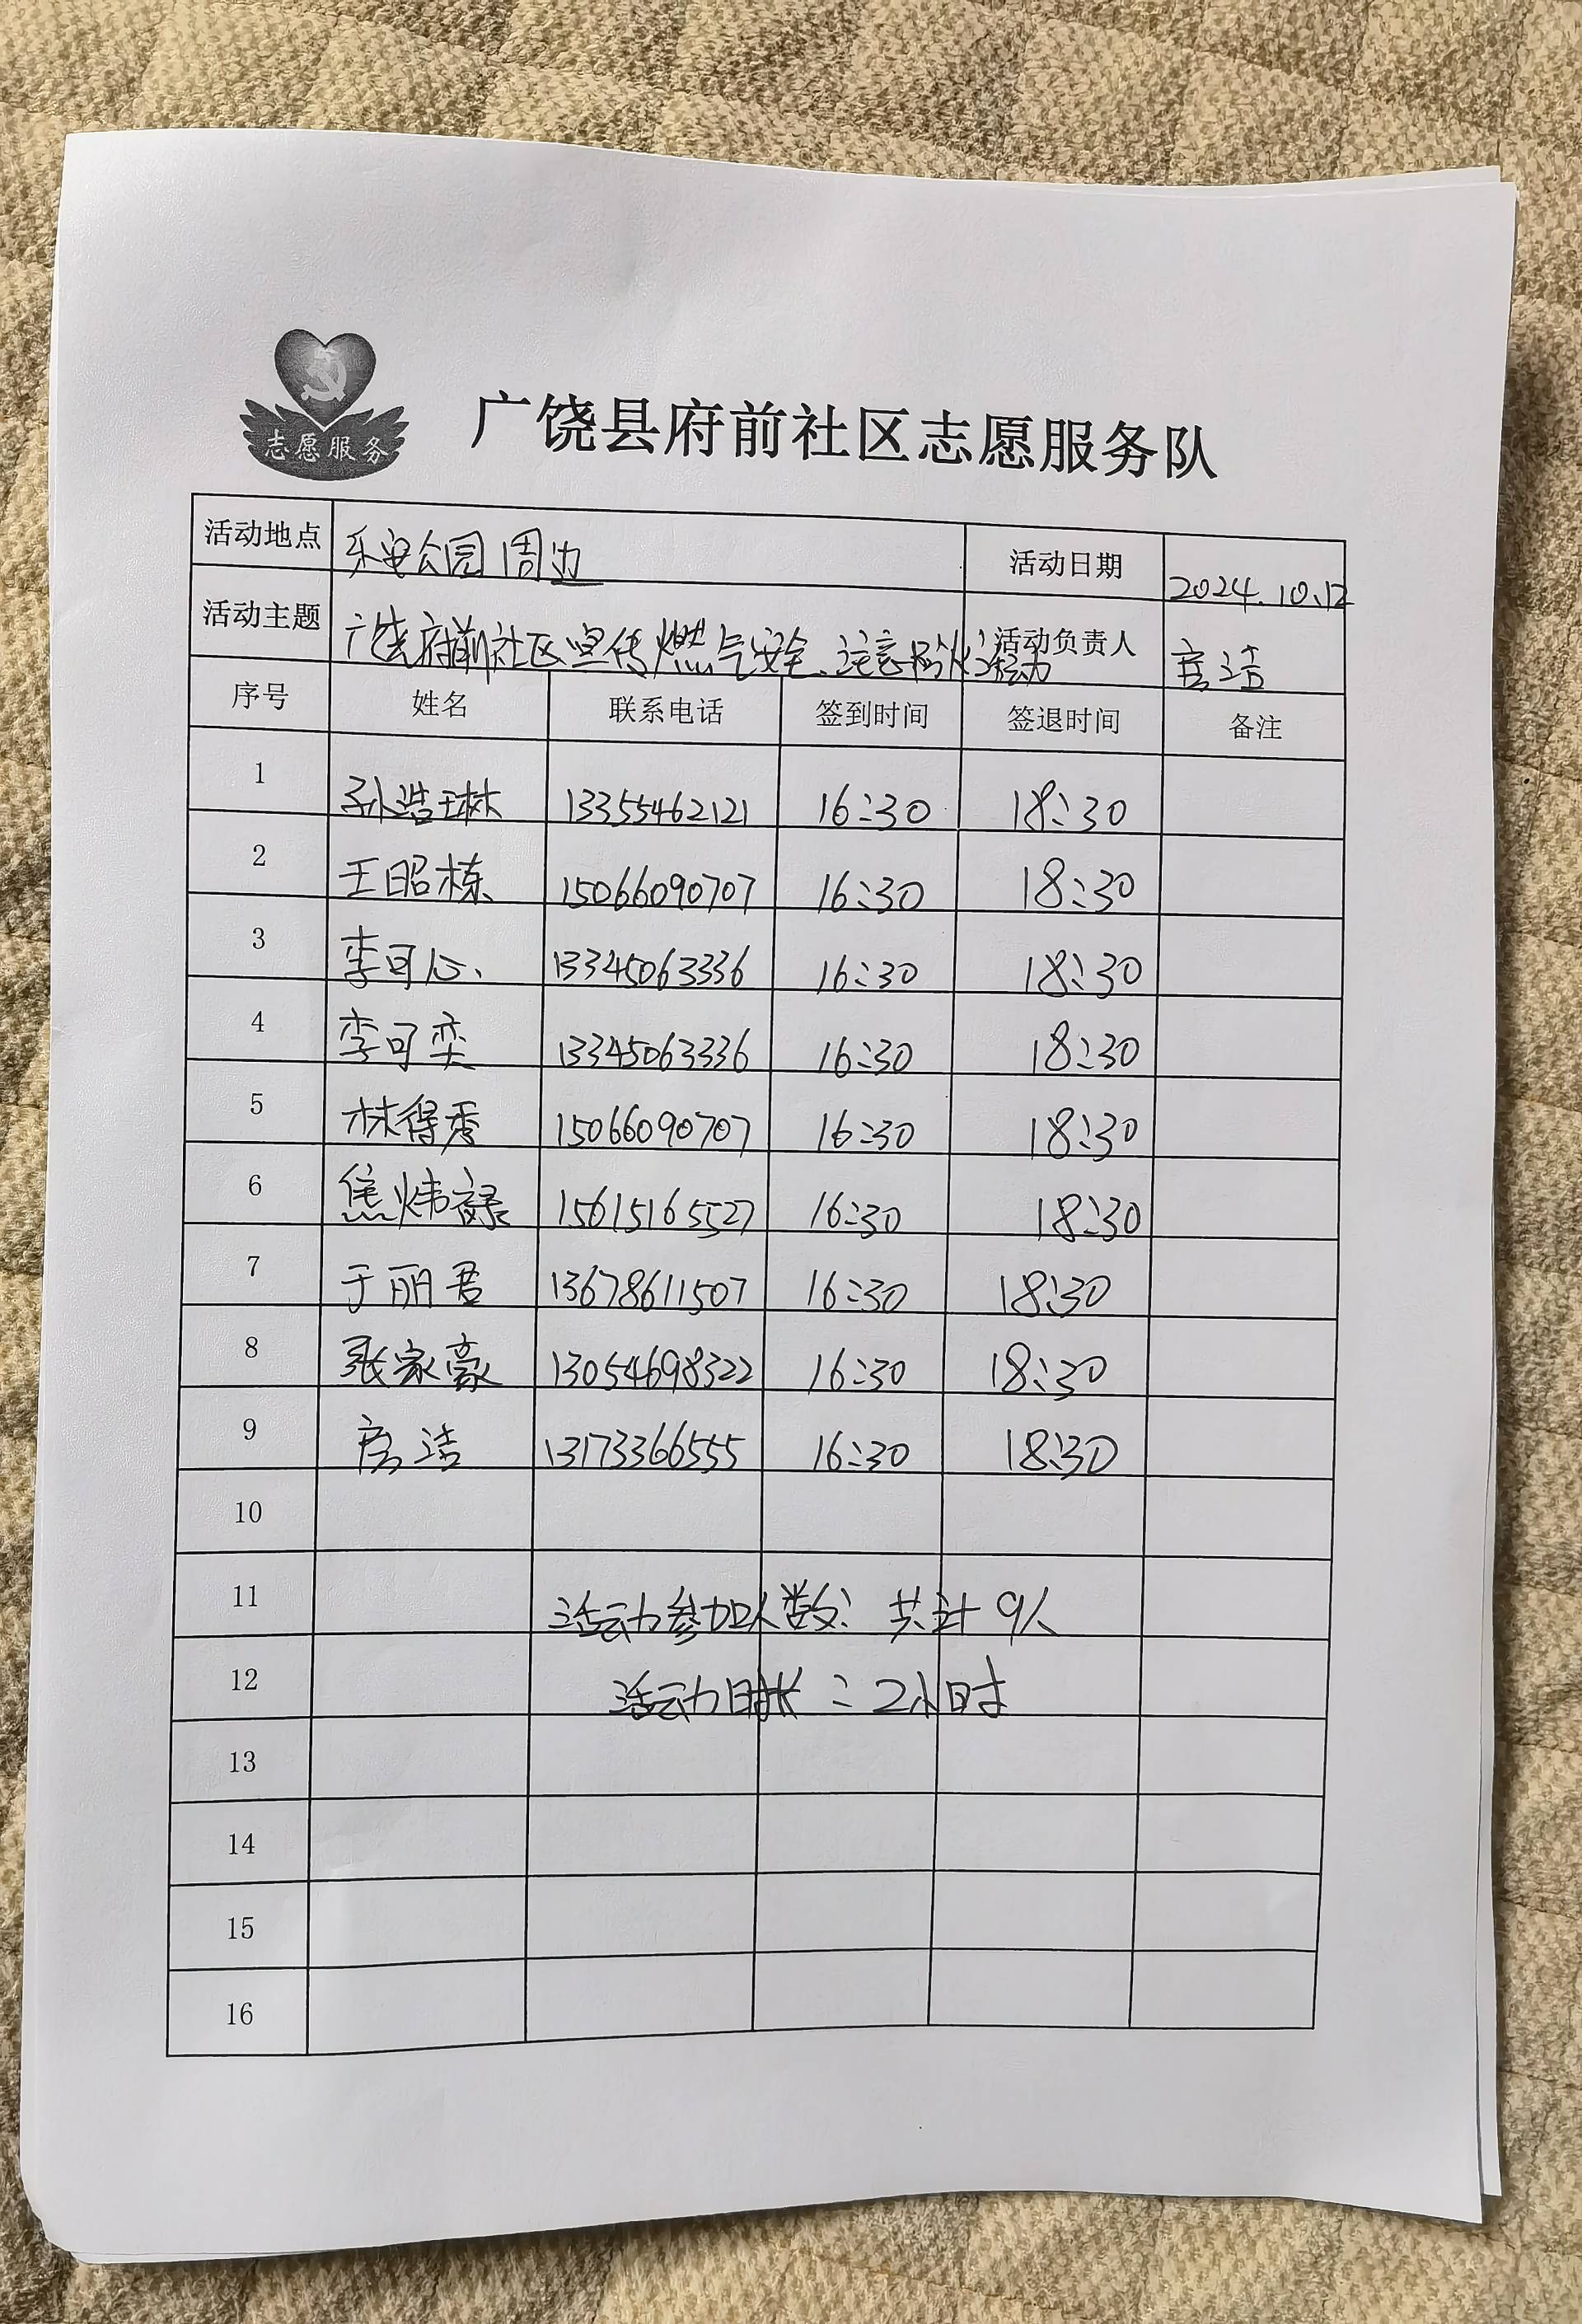 志愿服务
广饶县府前社区志愿服务队
活动地点 乐安公园周边 活动日期 2024.10.12
活动主题 广饶府前社区宣传燃气安全、注意防火活动 活动负责人 房洁
序号 姓名 联系电话 签到时间 签退时间 备注
1 孙浩琳 13355462121 16:30 18:30
2 王昭栋 15066090707 16:30 18:30
3 李可心 13345063336 16:30 18:30
4 李可奕 13345063336 16:30 18:30
5 林得秀 15066090707 16:30 18:30
6 焦炜禄 15615165527 16:30 18:30
7 于丽君 13678611507 16:30 18:30
8 张家豪 13054698322 16:30 18:30
9 房洁 13173366555 16:30 18:30
10
11 活动参加人数: 共计9人
12 活动时长:2小时
13
14
15
16